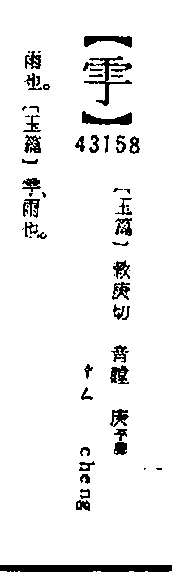 【】
43158
〔玉篇〕敕庚切 音瞠 庚平聲
ㄔㄥ cheng
雨也。〔玉篇〕、雨也。